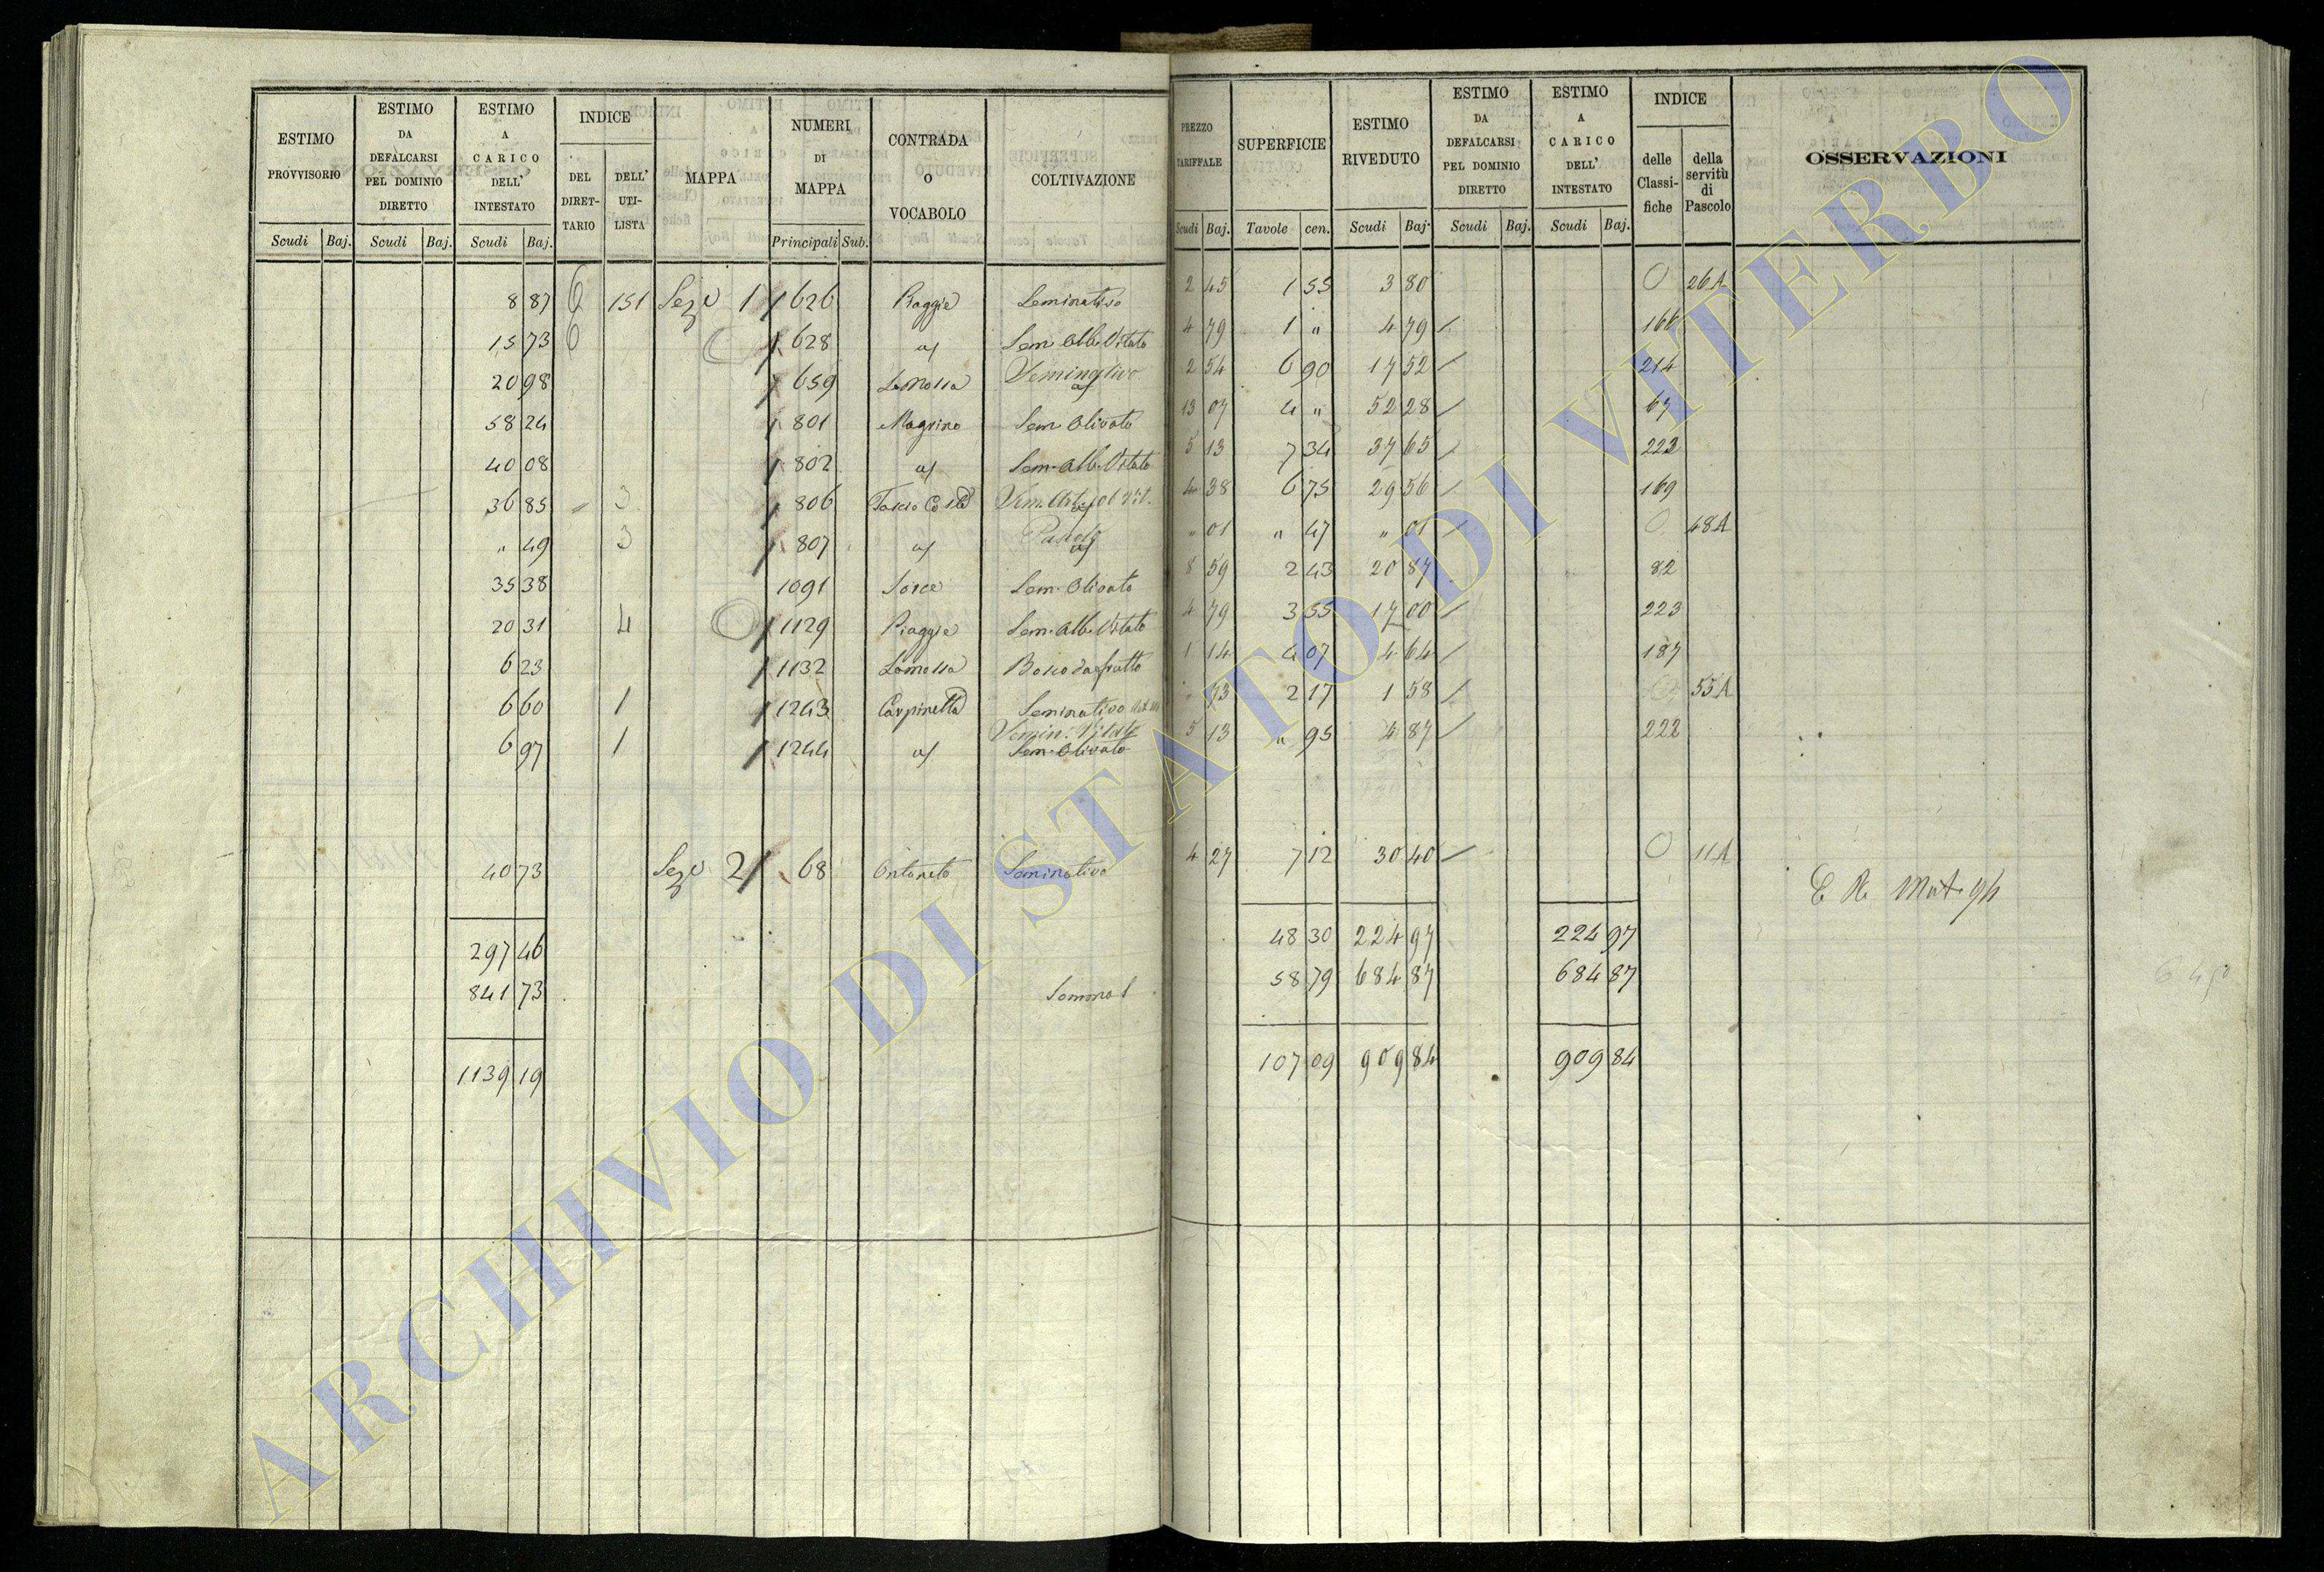 ESTIMO PROVVISORIO
ESTIMO DA DEFALCARSI PEL DOMINIO DIRETTO
ESTIMO A CARICO DELL' INTESTATO
INDICE
DEL DIRETTARIO
DELL' UTILISTA
MAPPA
NUMERI DI MAPPA
CONTRADA O VOCABOLO
COLTIVAZIONE
PREZZO TARIFFALE
SUPERFICIE
ESTIMO RIVEDUTO
ESTIMO DA DEFALCARSI PEL DOMINIO DIRETTO
ESTIMO A CARICO DELL' INTESTATO
INDICE
delle Classifiche
della servitù di Pascolo
OSSERVAZIONI
Scudi Baj. Scudi Baj. Scudi Baj. Principali Sub. Scudi Baj. Tavole cen. Scudi Baj. Scudi Baj. Scudi Baj.
8 87 6 151 Sez 1 626 Piaggie Seminativo 2 45 1 55 3 80 0 26A
15 73 6 628 Sem. Alb. Vitato 4 79 1 " 4 79 166
20 98 659 Seminativo 2 54 6 90 17 52 214
58 24 801 Magrino Sem Olivato 13 07 4 " 52 28 67
40 08 802 Sem. Alb. Vitato 5 13 7 34 37 65 222
36 85 3 806 4 38 6 75 29 56 169
" 49 3 807 " 01 " 47 " 01 0 48A
35 38 1091 Sorce Sem. Olivato 8 59 2 43 20 87 82
20 31 4 1129 Piaggie Sem. Alb. Vitato 4 79 3 55 17 00 223
6 23 1132 Bosco da frutto 1 14 4 07 4 64 187
6 60 1 1243 Carpinetta Seminativo " 73 2 17 1 58 55A
6 97 1 1244 Sem. Olivato 5 13 " 95 4 87 222
40 73 Sez 2 68 Ontaneto Seminativo 4 27 7 12 30 40 0 11A
297 46 48 30 224 97 224 97
841 73 58 79 684 87 684 87
1139 19 107 09 909 84 909 84
ARCHIVIO DI STATO DI VITERBO